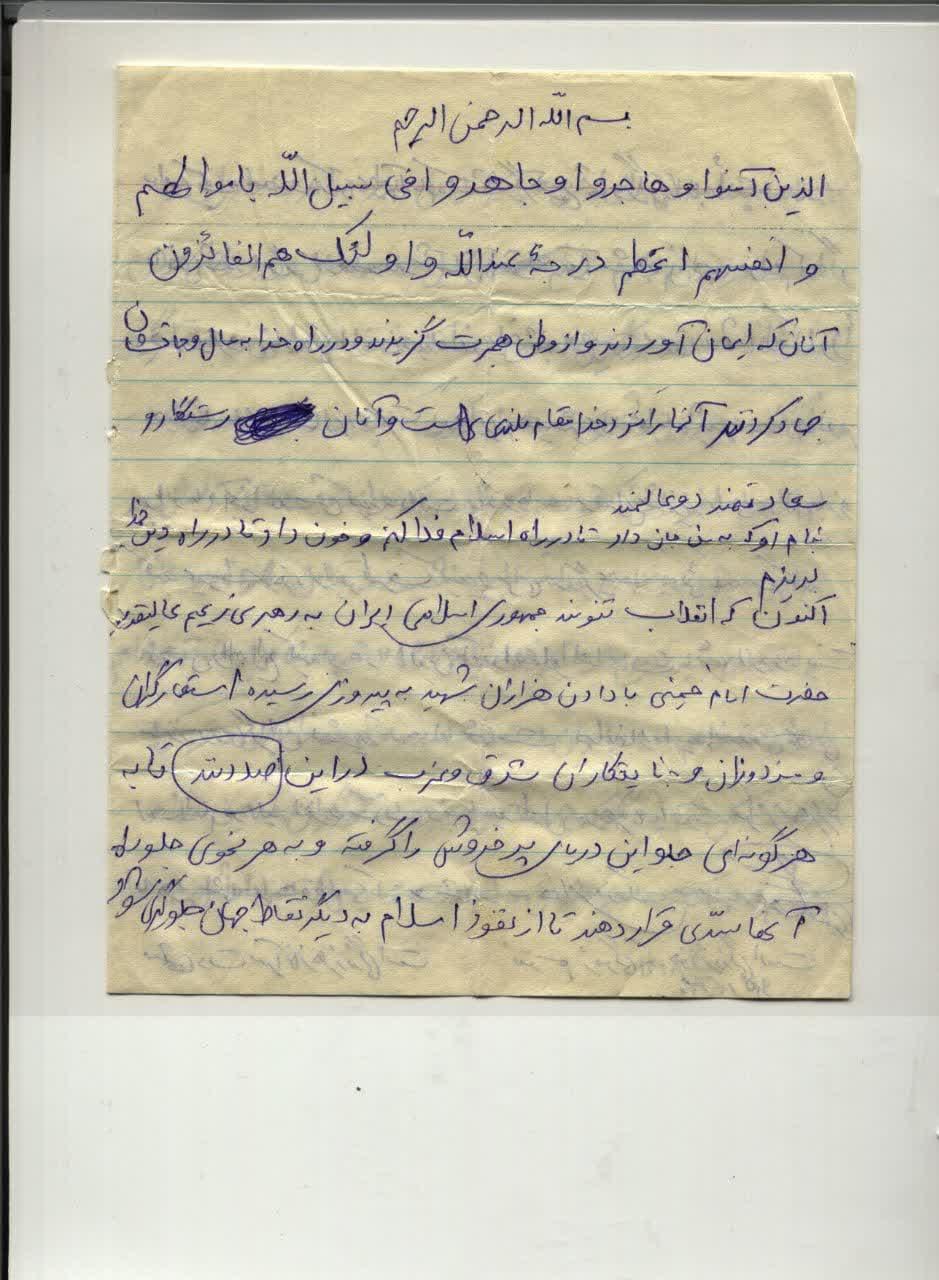 بسم الله الرحمن الرحیم
الذین آمنوا و هاجروا و جاهدوا فی سبیل اللّه باموالهم
و انفسهم اعظم درجهٔ عنداللّه و اولئک هم الفائزون
آنان که ایمان آوردند و از وطن هجرت گزیدند و در راه خدا به مال و جانشان
جهاد کردند آنها را نزد خدا مقام بلندی است و آنان رستگار و
سعادتمند دو عالمند
بنام او که به من جان داد تا در راه اسلام فدا کنم و خون داد تا در راه دین خدا
بریزم
اکنون که انقلاب تنومند جمهوری اسلامی ایران به رهبری زعیم عالیقدر
حضرت امام خمینی با دادن هزاران شهید به پیروزی رسیده استعمارگران
و مزدوران و جنایتکاران شرق و غرب در این صددند تا به
هر گونه‌ای جلو این دریای پر خروش را گرفته و به هر نحوی جلو راه
آنها سدّی قرار دهند تا از نفوذ اسلام به دیگر نقاط جهان جلوگیری شود